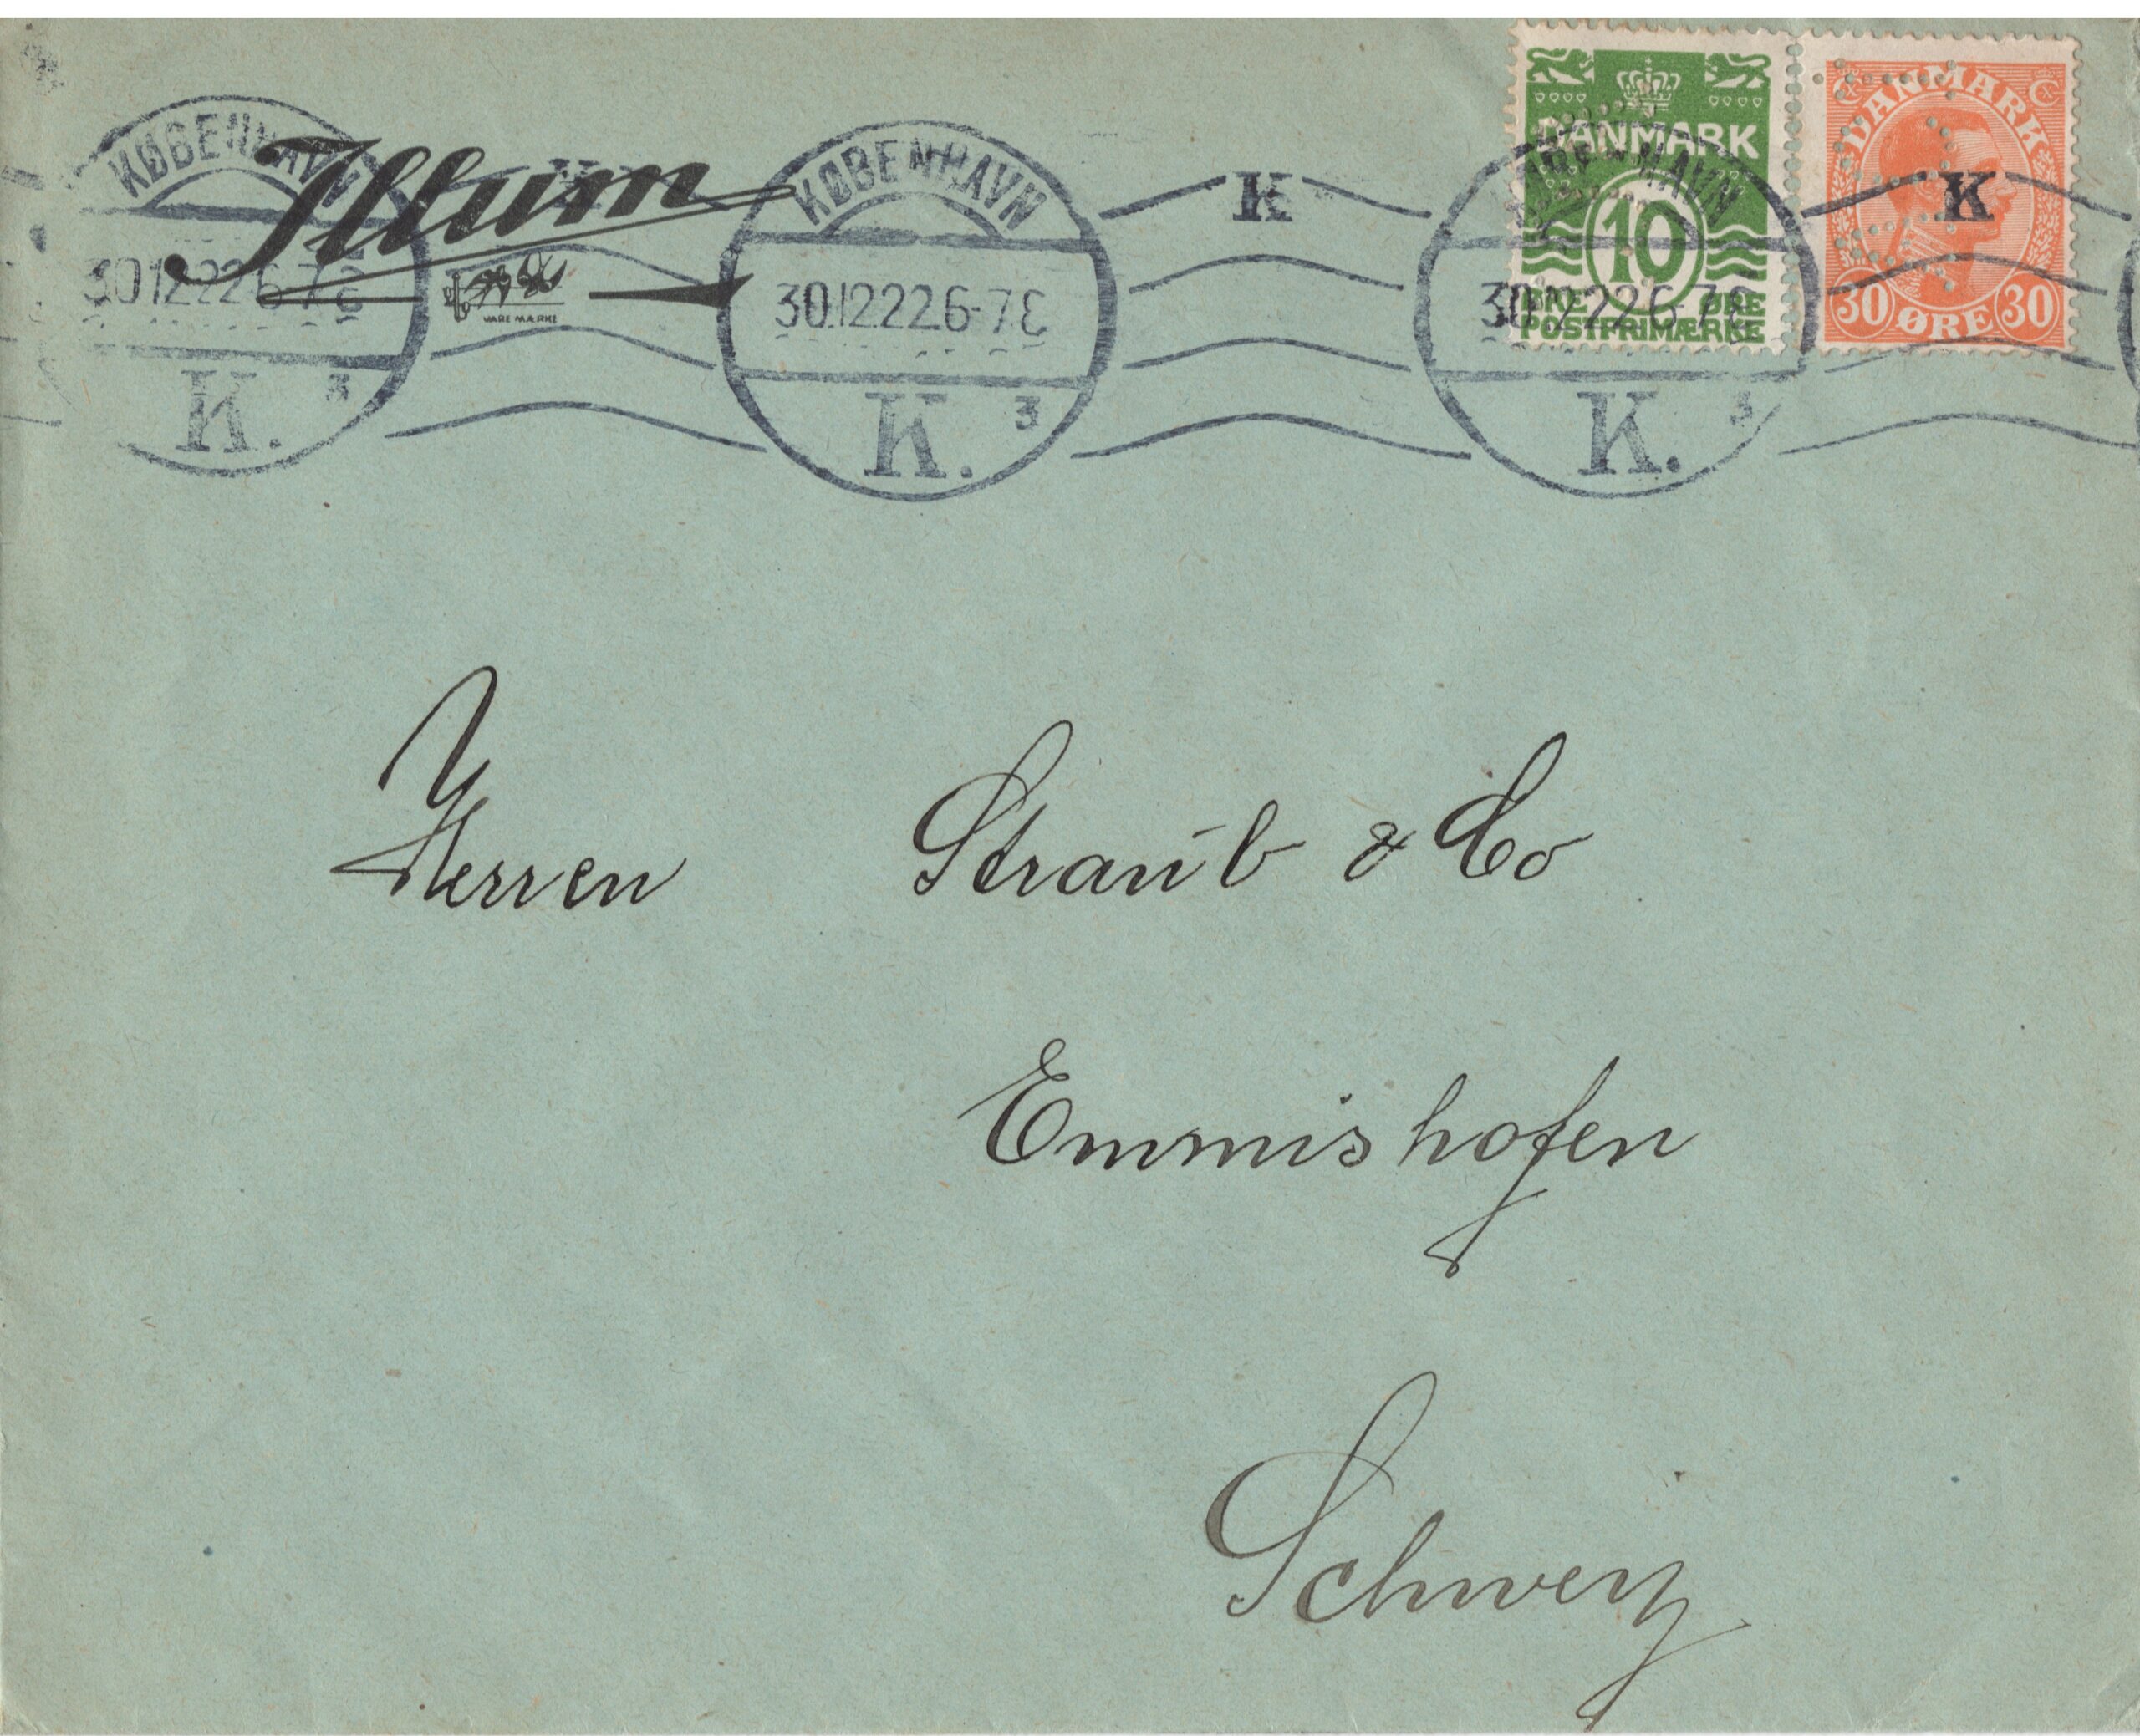 Illum
VARE MÆRKE
KØBENHAVN
30.12.22.6-7E
K. 3
KØBENHAVN
30.12.22.6-7E
K. 3
K
HAVN
30.12.22.6-7E
K. 3
K
DANMARK
10
ØRE ØRE
POSTFRIMÆRKE
DANMARK
30 ØRE 30
Herren Straub & Co
Emmishofen
Schweiz